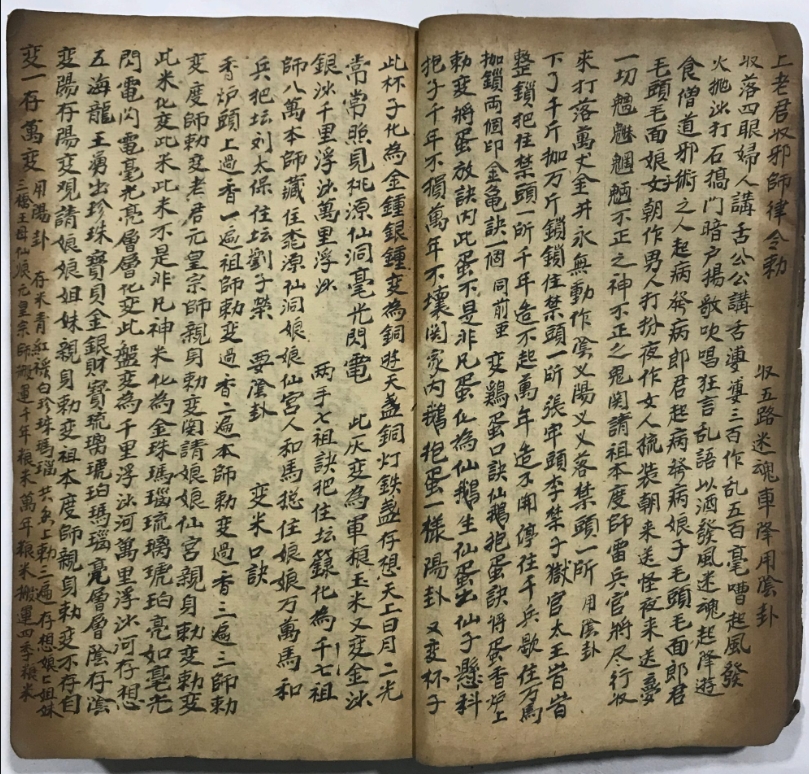 上老君收邪師律令勅　收五路迷魂車降用陰卦
收落四眼婦人講舌公公講舌婆婆三百作乱五百毫嘈起風發
火抛沙打石搞門暗戶揚歌吹唱狂言乱語以酒發風迷魂起降遊
食僧道邪術之人起病發病郎君起病發病娘子毛頭毛面郎君
毛頭毛面娘子朝作男人打扮夜作女人梳装朝来送怪夜来送憂
一切魑魅魍魎不正之神不正之鬼関請祖本度師雷兵官將尽行收
來打落萬丈金井永無動作陰乂陽乂乂落禁頭一所 用陰卦
下了千斤枷万斤鎖鎖住禁頭一所張牢頭李禁子獄官太王沓沓
整鎖把住禁頭一所千年造不起萬年造不開停住千兵歇住万馬
枷鎖両個印金亀訣一個 同前 変鷄蛋口訣仙鵝抱蛋訣将蛋香炉上
勅変將蛋放訣内此蛋不是非凡蛋化為仙鵝生仙蛋仙子懸科
把子千年不損萬年不壊関家内鵝抱蛋一樣 陽卦 又変杯子
此杯子化為金鍾銀鍾変為銅 天盏銅灯鉄盏存想天上日月二光
常常照見桃源仙洞毫光閃電　此灰変為軍粮玉米又変金沙
銀沙千里浮沙萬里浮沙　両手七祖訣把住坛籙化為千七祖
師八萬本師藏住桃源仙洞娘娘仙宮人和馬穏住娘娘万萬馬和
兵把坛刘太保住坛劉子荣　要陰卦　変米口訣
香炉頭上過香一遍祖師勅変過香二遍本師勅変過香三遍三師勅
変度師勅変老君元皇宗師親身勅変関請娘娘仙宮親身勅変勅変
此米化変此米此米不是非凡神米化為金珠瑪瑙琉璃琥珀亮如毫光
閃電内電毫光亮層層化変此盤変為千里浮沙河萬里浮沙河存想
五海龍王勇出珍珠寶貝金銀財寶琉璃琥珀瑪瑙亮層層陰存陰
変陽存陽変观請娘娘姐妹親身勅変祖本度師親身勅変不存自
変一存萬変 用陽卦 存米青紅 白珍珠瑪瑙 共 上勅三遍存想娘上姐妹
三橋王母仙娘元皇宗師搬運千年粮米萬年粮米搬運四季粮米